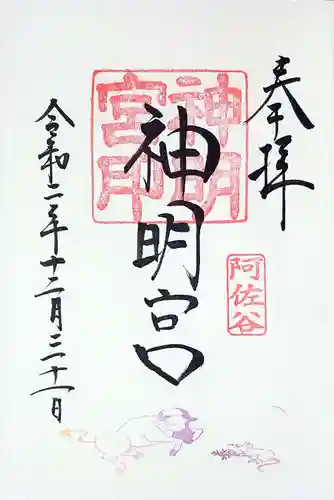 奉拝
阿佐谷
神明宮
神明宮印
令和二年十二月三十一日